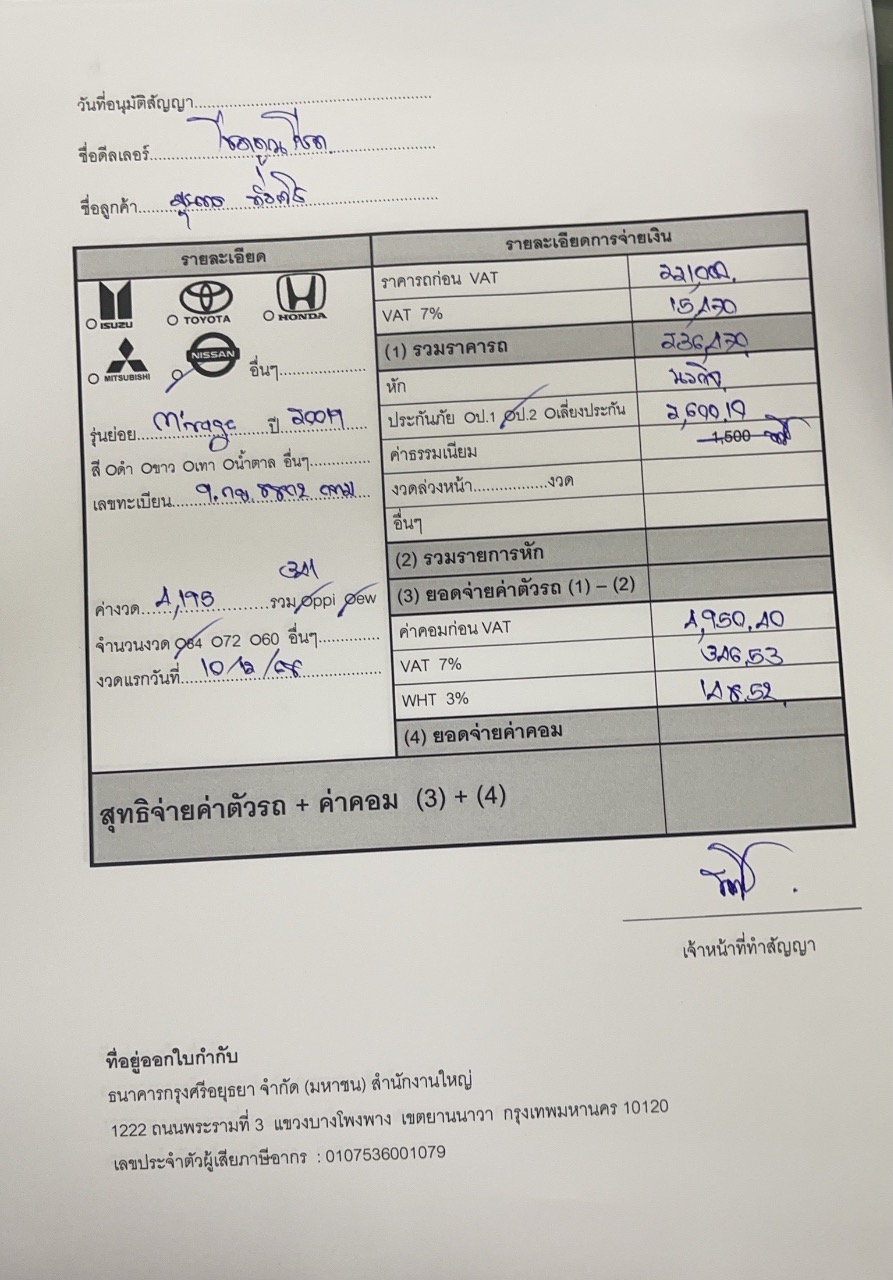 วันที่อนุมัติสัญญา
ชื่อดีลเลอร์
ชื่อลูกค้า
รายละเอียด
รายละเอียดการจ่ายเงิน
ISUZU
TOYOTA
HONDA
MITSUBISHI
NISSAN
อื่นๆ
รุ่นย่อย Mirage ปี
สี ดำ ขาว เทา น้ำตาล อื่นๆ
เลขทะเบียน
ค่างวด 4,195 รวม ppi ew
จำนวนงวด 84 72 60 อื่นๆ
งวดแรกวันที่ 10/12/68
ราคารถก่อน VAT 221,000
VAT 7% 15,470
(1) รวมราคารถ 236,470
หัก
ประกันภัย ป.1 ป.2 เลี่ยงประกัน
ค่าธรรมเนียม 1,500
งวดล่วงหน้า งวด
อื่นๆ
(2) รวมรายการหัก
(3) ยอดจ่ายค่าตัวรถ (1) – (2)
ค่าคอมก่อน VAT 4,950.40
VAT 7% 346.53
WHT 3% 148.52
(4) ยอดจ่ายค่าคอม
สุทธิจ่ายค่าตัวรถ + ค่าคอม (3) + (4)
เจ้าหน้าที่ทำสัญญา
ที่อยู่ออกใบกำกับ
ธนาคารกรุงศรีอยุธยา จำกัด (มหาชน) สำนักงานใหญ่
1222 ถนนพระรามที่ 3 แขวงบางโพงพาง เขตยานนาวา กรุงเทพมหานคร 10120
เลขประจำตัวผู้เสียภาษีอากร : 0107536001079